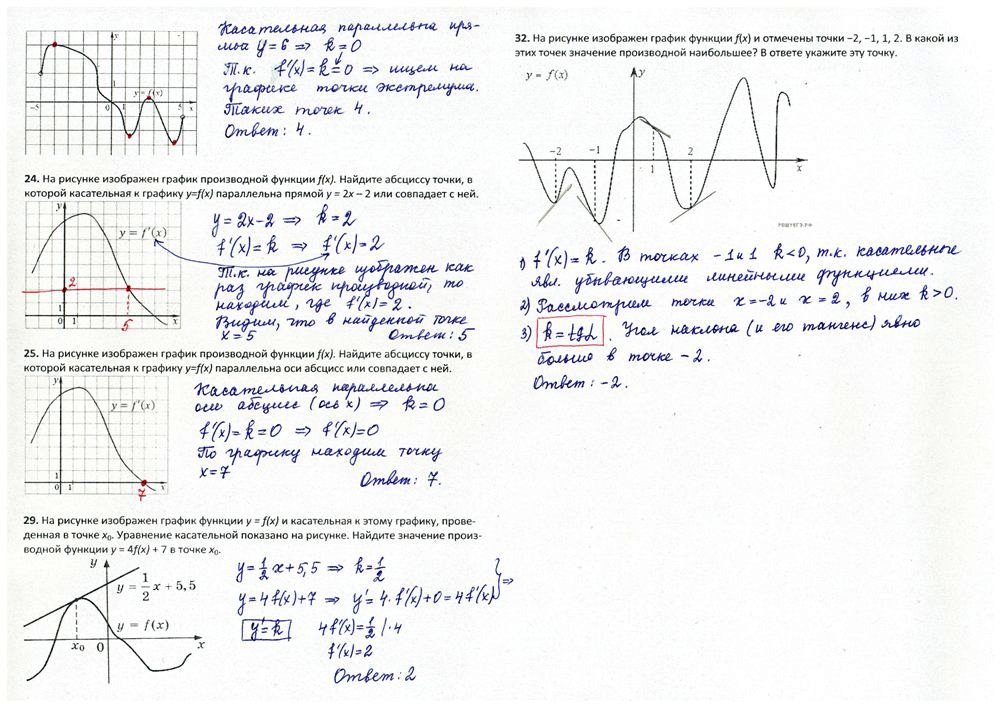 Касательная параллельна пря-
мой y=6 => k=0
Т.к. f'(x)=k=0 => ищем на
графике точки экстремума.
Таких точек 4.
Ответ: 4.
y
y = f(x)
-5
0
1
5
x
24. На рисунке изображен график производной функции f(x). Найдите абсциссу точки, в
которой касательная к графику y=f(x) параллельна прямой y = 2x – 2 или совпадает с ней.
y
y = f'(x)
2
1
0
1
5
x
y=2x-2 => k=2
f'(x)=k => f'(x)=2
Т.к. на рисунке изображен как
раз график производной, то
находим, где f'(x)=2.
Видим, что в найденной точке
x=5 Ответ: 5
25. На рисунке изображен график производной функции f(x). Найдите абсциссу точки, в
которой касательная к графику y=f(x) параллельна оси абсцисс или совпадает с ней.
y
y = f'(x)
1
0
1
7
x
Касательная параллельна
оси абсцисс (ось x) => k=0
f'(x)=k=0 => f'(x)=0
По графику находим точку
x=7
Ответ: 7.
29. На рисунке изображен график функции y = f(x) и касательная к этому графику, прове-
денная в точке x₀. Уравнение касательной показано на рисунке. Найдите значение произ-
водной функции y = 4f(x) + 7 в точке x₀.
y
y = 1/2 x + 5,5
y = f(x)
x₀
0
x
y=1/2 x+5,5 => k=1/2
y=4f(x)+7 => y'=4·f'(x)+0=4f'(x) } =>
y'=k 4f'(x)=1/2 |·4
f'(x)=2
Ответ: 2
32. На рисунке изображен график функции f(x) и отмечены точки −2, −1, 1, 2. В какой из
этих точек значение производной наибольшее? В ответе укажите эту точку.
y = f(x)
y
-2
-1
0
1
2
x
РЕШУЕГЭ.РФ
1) f'(x)=k. В точках -1 и 1 k<0, т.к. касательные
явл. убывающими линейными функциями.
2) Рассмотрим точки x=-2 и x=2, в них k>0.
3) k=tgα. Угол наклона (и его тангенс) явно
больше в точке -2.
Ответ: -2.